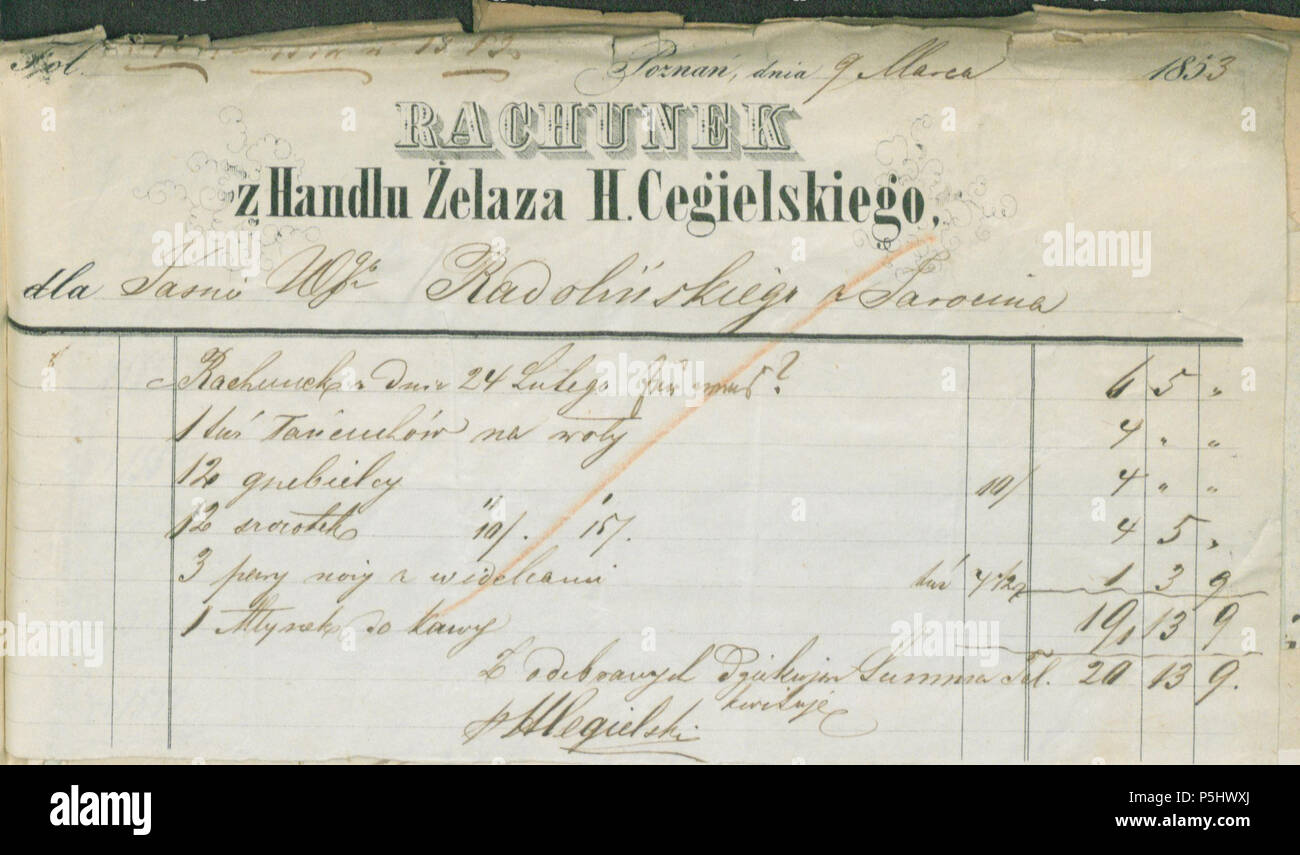 Fol.
Poznań, dnia 9 Marca 1853
RACHUNEK
z Handlu Żelaza H. Cegielskiego,
dla Jaśnie Wgo Radolińskiego z Jarocina
Rachunek z dnia 24 Lutego 6 5 "
1 tuś Łańcuchów na woły 4 " "
12 grzebielcy 10/ 4 " "
12 szczotek 10/. 15/. 4 5 "
3 pary noży z widelcami tuś 4 1/2 1 3 9
1 Młynek do Kawy 19 13 9
Z odebranych Summa Tal. 20 13 9.
kwituje
HCegielski
alamy
Image ID: P5HWXJ
www.alamy.com